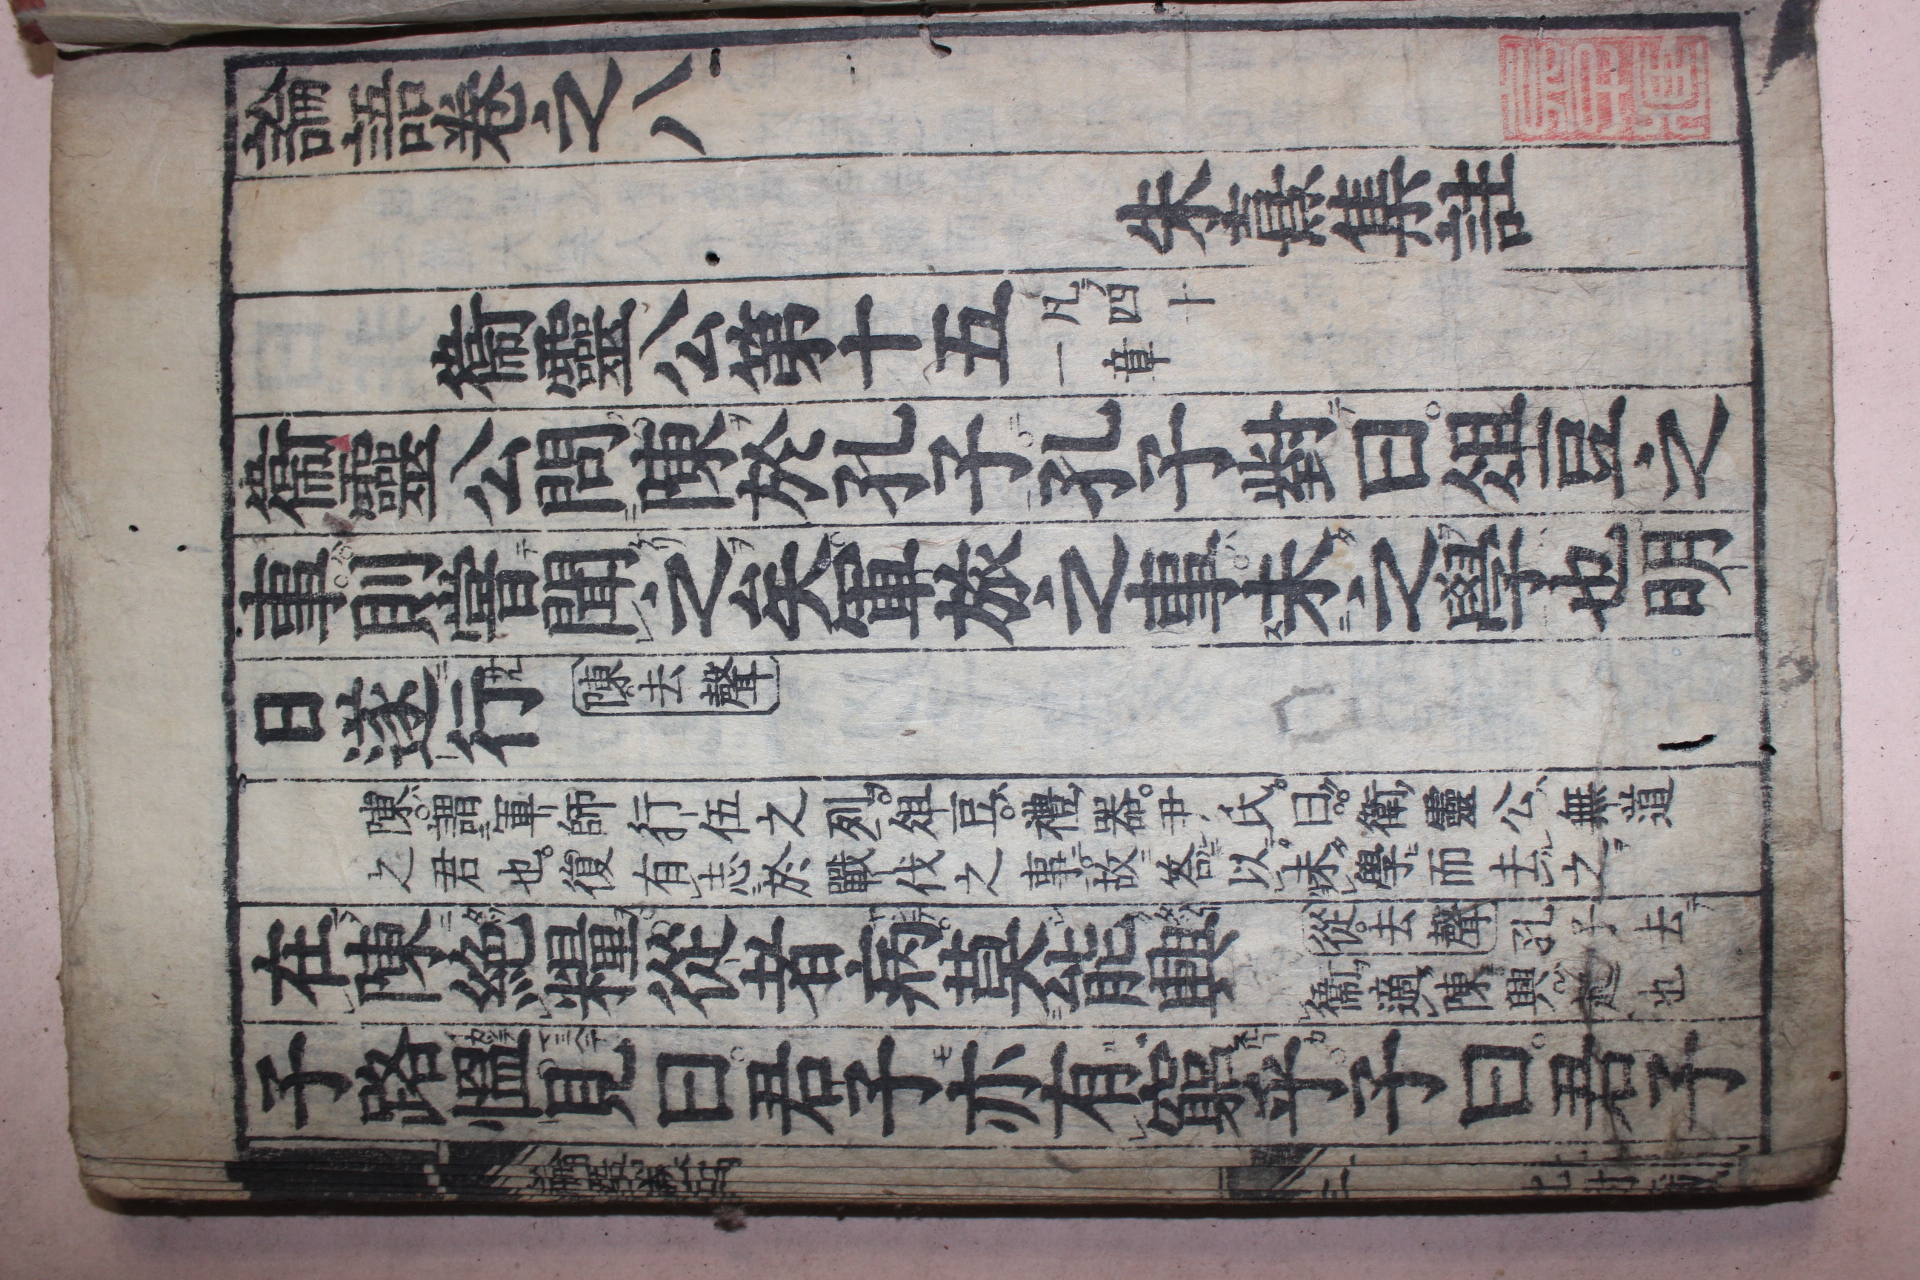 論語卷之八
朱熹集註
衞靈公第十五
凡四十
一章
衞靈公問陳於孔子孔子對曰俎豆之
事則嘗聞之矣軍旅之事未之學也明
日遂行
陳去聲
陳謂軍師行伍之列俎豆禮器尹氏曰衛靈公無道
之君也復有志於戰伐之事故答以未學而去之
在陳絕糧從者病莫能興
從去聲孔子去
衞適陳興起也
子路慍見曰君子亦有窮乎子曰君子